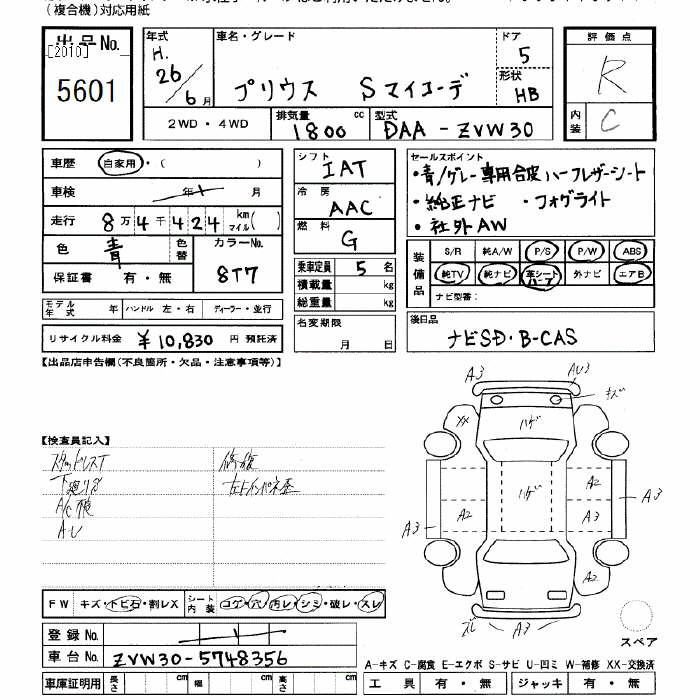 (複合機)対応用紙
出品No.
[2010]
5601
年式
H.
26/6月
車名・グレード
プリウス Sマイコーデ
ドア
5
形状
HB
2WD・4WD
排気量
1800 cc
型式
DAA-ZVW30
評価点
R
内装
C
車歴 自家用・( )
車検 年 月
走行 8万4千424 km マイル( )
色 青 色替 カラーNo. 8T7
保証書 有・無
モデル年式 年 ハンドル 左・右 ディーラー・並行
リサイクル料金 ¥10,830 円 預託済
シフト
IAT
冷房
AAC
燃料
G
乗車定員 5 名
積載量 kg
総重量 kg
名変期限
月 日
セールスポイント
・青/グレー専用合皮ハーフレザーシート
・純正ナビ ・フォグライト
・社外AW
装備品
S/R 純A/W P/S P/W ABS
純TV 純ナビ 革シート ハーフ 外ナビ エアB
ナビ型番:
後日品
ナビSD・B-CAS
【出品店申告欄(不良箇所・欠品・注意事項等)】
【検査員記入】
スタッドレスT
下廻りサビ
修復
AU
A3
AU3
キズ
XX
ハゲ
ハゲ
A2
A2
A3
A3
A3
A2
A3
スペア
FW キズ・トビ石・割レX シート内装 コゲ・穴・汚レ・シミ・破レ・スレ
登録No.
車台No. ZVW30-5748356
車庫証明用 長さ cm 幅 cm 高さ cm
A-キズ C-腐食 E-エクボ S-サビ U-凹ミ W-補修 XX-交換済
工具 有・無 ジャッキ 有・無